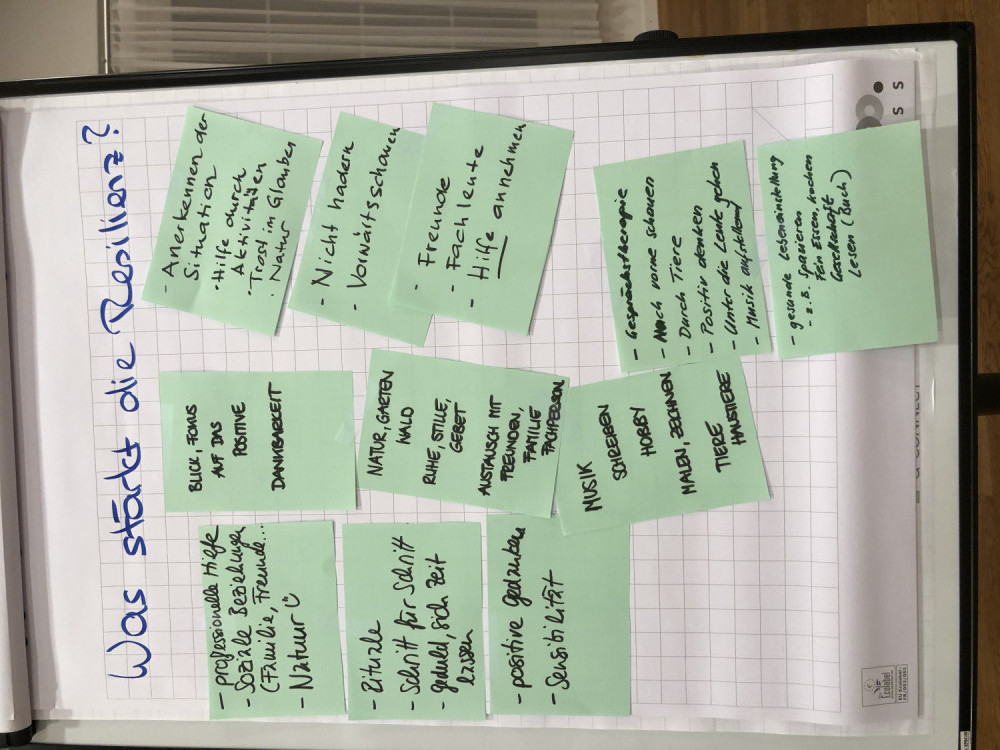 Was stärkt die Resilienz?
- professionelle Hilfe
- Soziale Beziehungen
(Familie, Freunde...
- Natuur
- Rituale
- Schritt für Schritt
- geduld, sich Zeit
lassen
- positive gedanken
- Sensibilität
BLICK, FOKUS
AUF DAS
POSITIVE
DANKBARKEIT
NATUR, GARTEN
WALD
RUHE, STILLE,
GEBET
AUSTAUSCH MIT
FREUNDEN,
FAMILIE
FACHPERSON
MUSIK
SCHREIBEN
HOBBY
MALEN, ZEICHNEN
TIERE
HAUSTIERE
- Anerkennen der
Situation
· Hilfe durch
Aktivitäten
· Trost im Glauben
· Natur
- Nicht hadern
- Vorwärtsschauen
- Freunde
- Fachleute
- Hilfe annehmen
- Gesprächstherapie
- Nach vorne schauen
- Durch Tiere
- Positiv denken
- Unter die Leute gehen
- Musik aufstellend
- gesunde Lebenseinstellung
- z.B. Spazieren
Fein Essen, kochen
Gesellschaft
Lesen (Buch)
Ecolabel
S
S